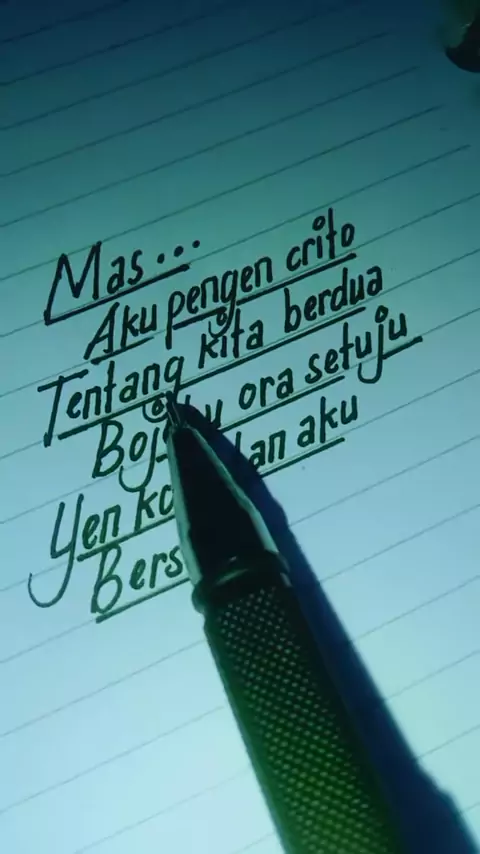 Mas...
Aku pengen crito
Tentang kita berdua
ora setuju
Yen aku